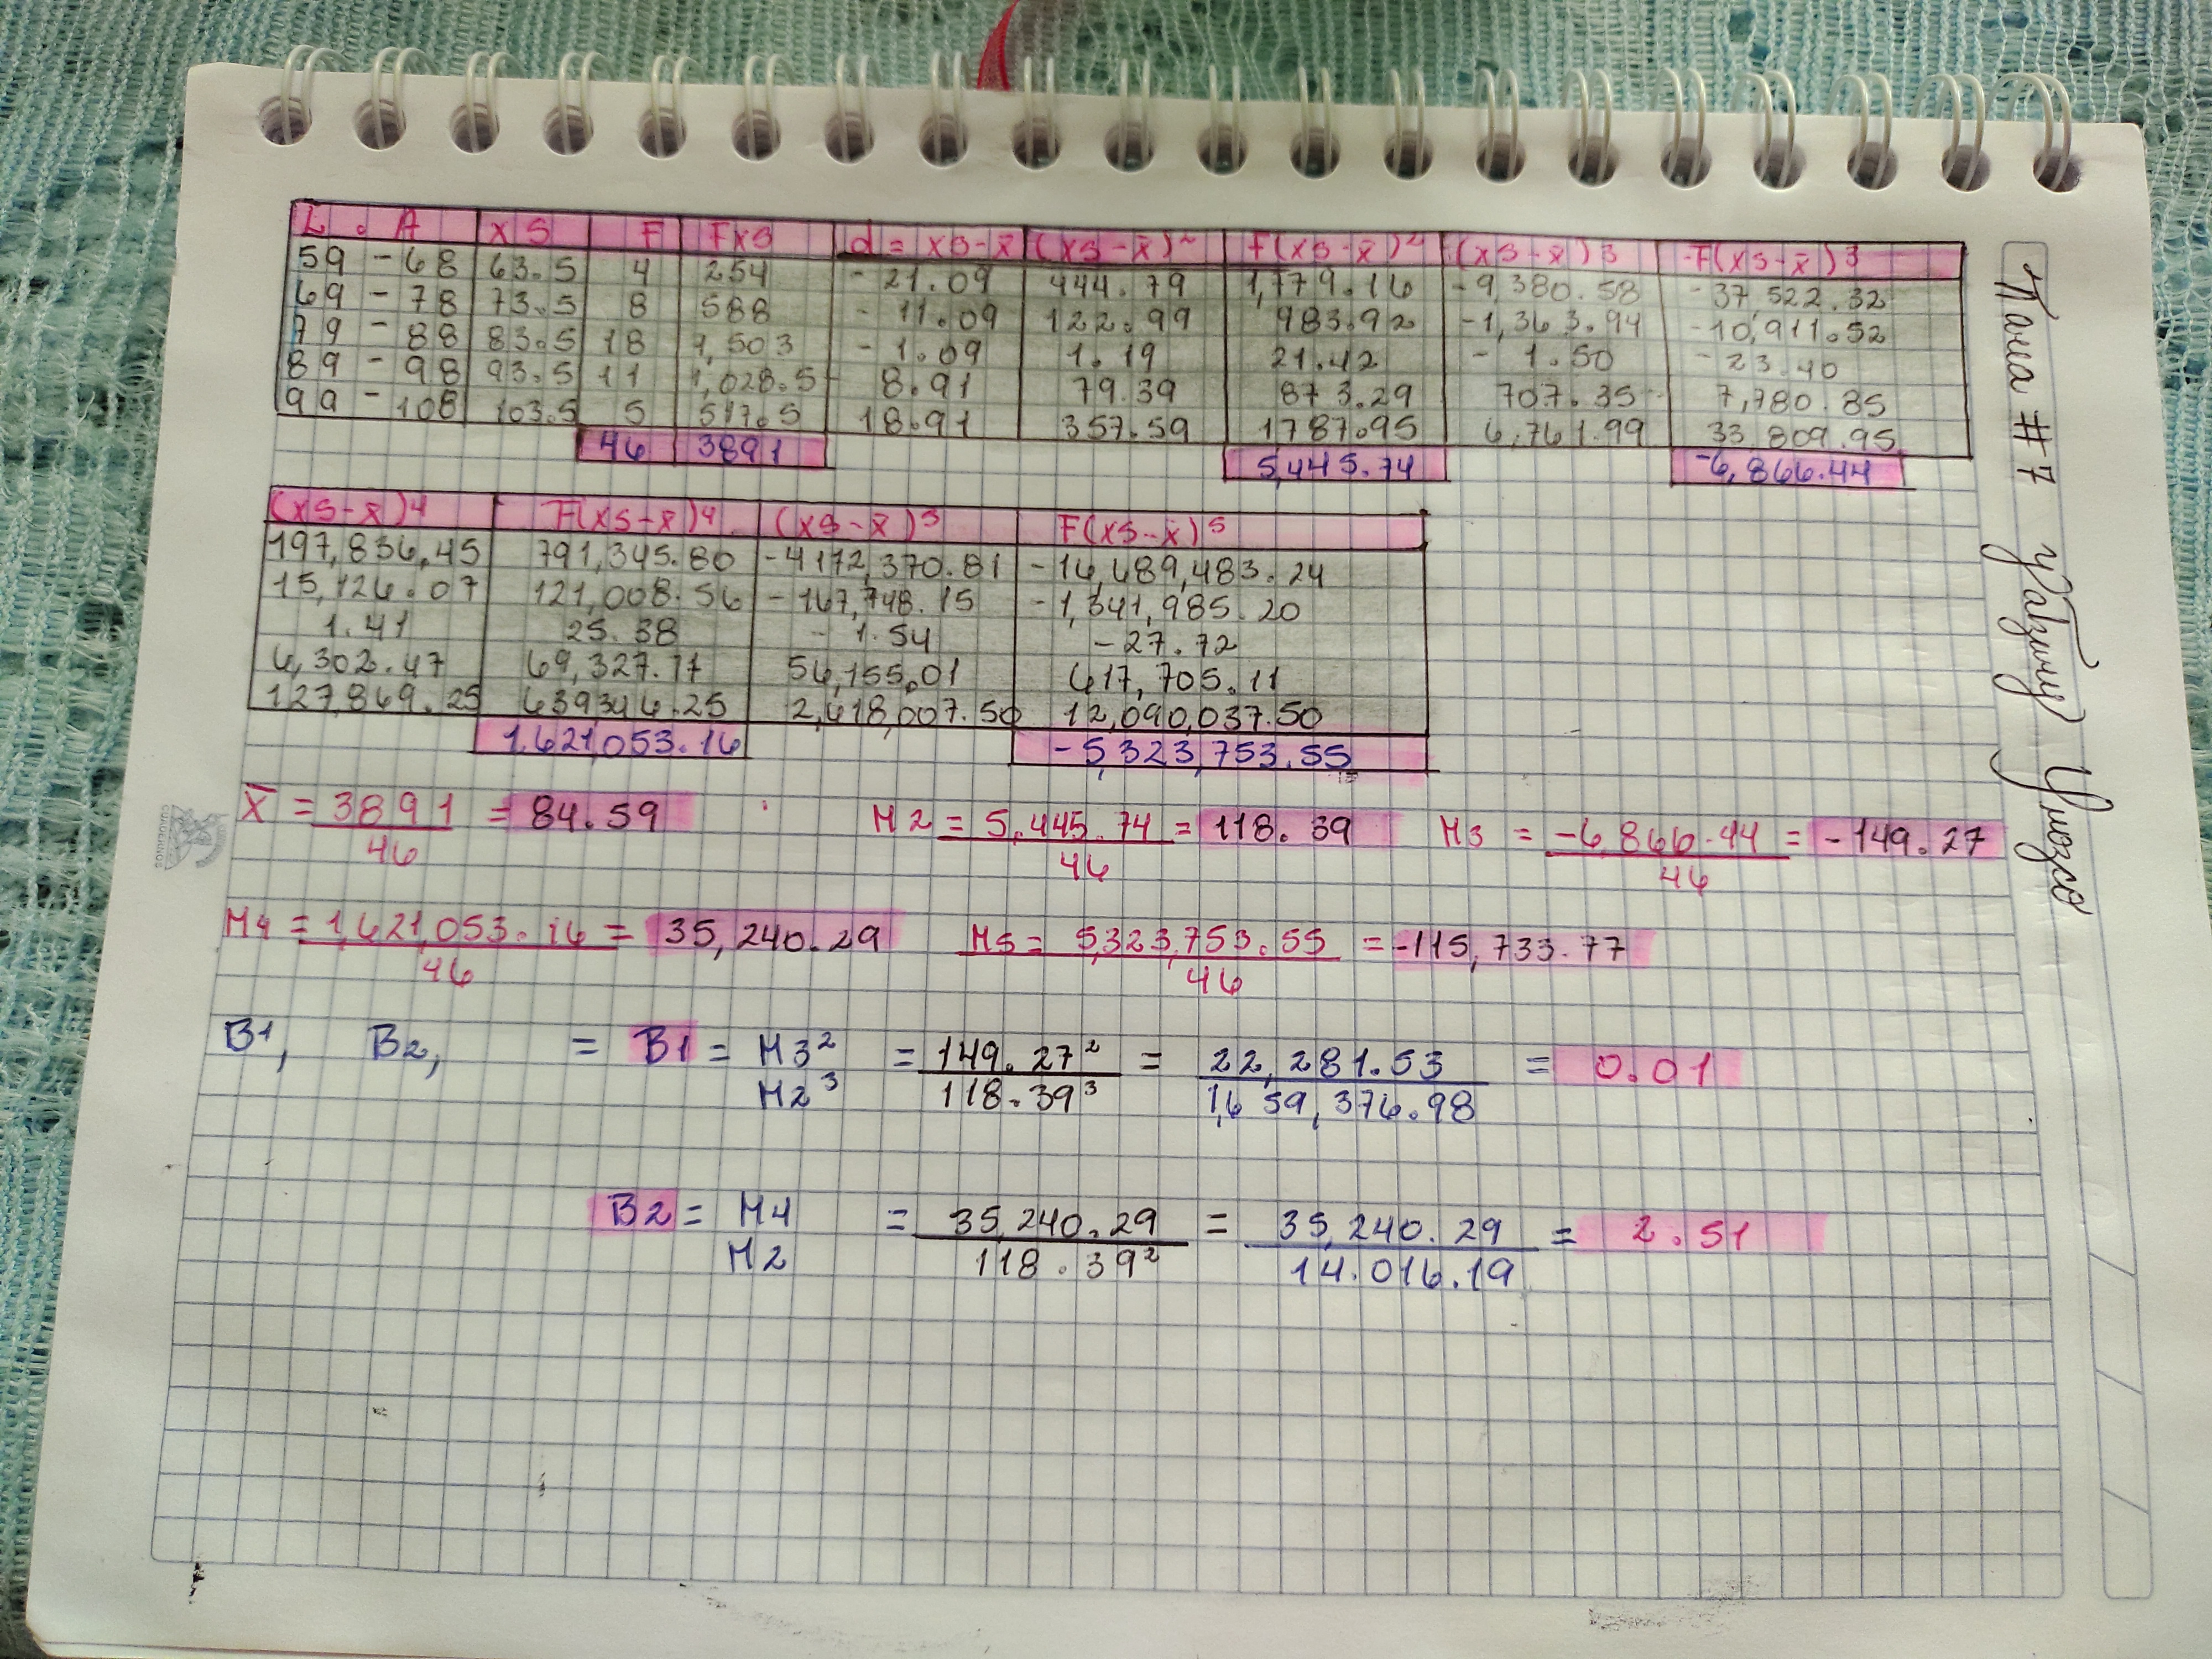 L . A XS F FXS d = XS-x̄ (XS-x̄)² F(XS-x̄)² (XS-x̄)3 F(XS-x̄)3
59 - 68 63.5 4 254 - 21.09 444.79 1,779.16 -9,380.58 -37,522.32
69 - 78 73.5 8 588 - 11.09 122.99 983.92 -1,363.94 -10,911.52
79 - 88 83.5 18 1,503 - 1.09 1.19 21.42 - 1.50 - 23.40
89 - 98 93.5 11 1,028.5 8.91 79.39 873.29 707.35 7,780.85
99 - 108 103.5 5 517.5 18.91 357.59 1787.95 6,761.99 33.809.95
46 3891 5,445.74 -6,866.44
(XS-x̄)4 F(XS-x̄)4 (XS-x̄)5 F(XS-x̄)5
197,836.45 791,345.80 -4172,370.81 -16,689,483.24
15,126.07 121,008.56 -167,748.15 -1,341,985.20
1.41 25.38 - 1.54 -27.72
6,302.47 69,327.17 56,155.01 617,705.11
127,869.25 639346.25 2,418,007.50 12,090,037.50
1,621,053.16 -5,323,753.55
X̄ = 3891 = 84.59 M2 = 5,445.74 = 118.39 M3 = -6,866.44 = -149.27
46 46 46
M4 = 1,621,053.16 = 35,240.29 M5 = 5,323,753.55 = -115,733.77
46 46
B1, B2, = B1 = M3² = 149.27² = 22,281.53 = 0.01
M2³ 118.39³ 1,659,376.98
B2 = M4 = 35,240.29 = 35,240.29 = 2.51
M2 118.39² 14.016.19
#7
CUADERNOS